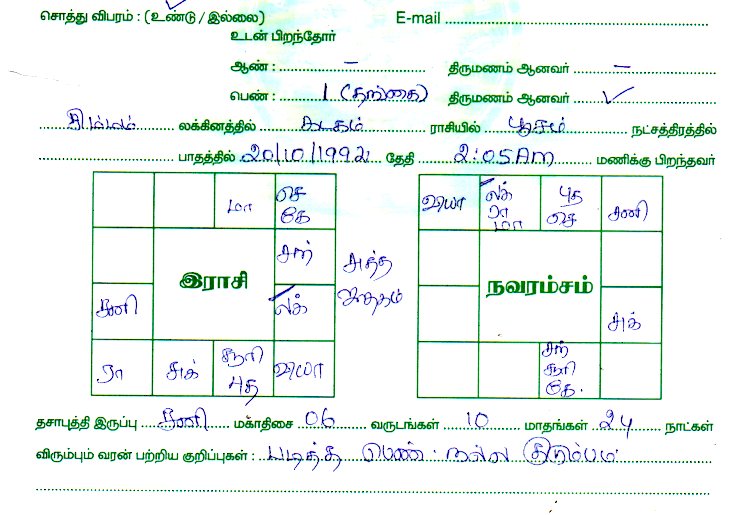 சொத்து விபரம் : (உண்டு / இல்லை) E-mail
உடன் பிறந்தோர்
ஆண் : – திருமணம் ஆனவர் –
பெண் : 1 (தங்கை) திருமணம் ஆனவர் ✓
சிம்மம் லக்கினத்தில் கடகம் ராசியில் பூசம் நட்சத்திரத்தில்
பாதத்தில் 20/10/1992 தேதி 2:05 Am மணிக்கு பிறந்தவர்
மா செ வியா லக் புத சனி
கே ரா செ
சந் மா
இராசி சுத்த நவரம்சம்
சனி லக் ஜாதகம் சுக்
ரா சுக் சூரி வியா சந்
புத சூரி
கே.
தசாபுத்தி இருப்பு சனி மகாதிசை 06 வருடங்கள் 10 மாதங்கள் 24 நாட்கள்
விரும்பும் வரன் பற்றிய குறிப்புகள் : படித்த பெண். நல்ல குடும்பம்